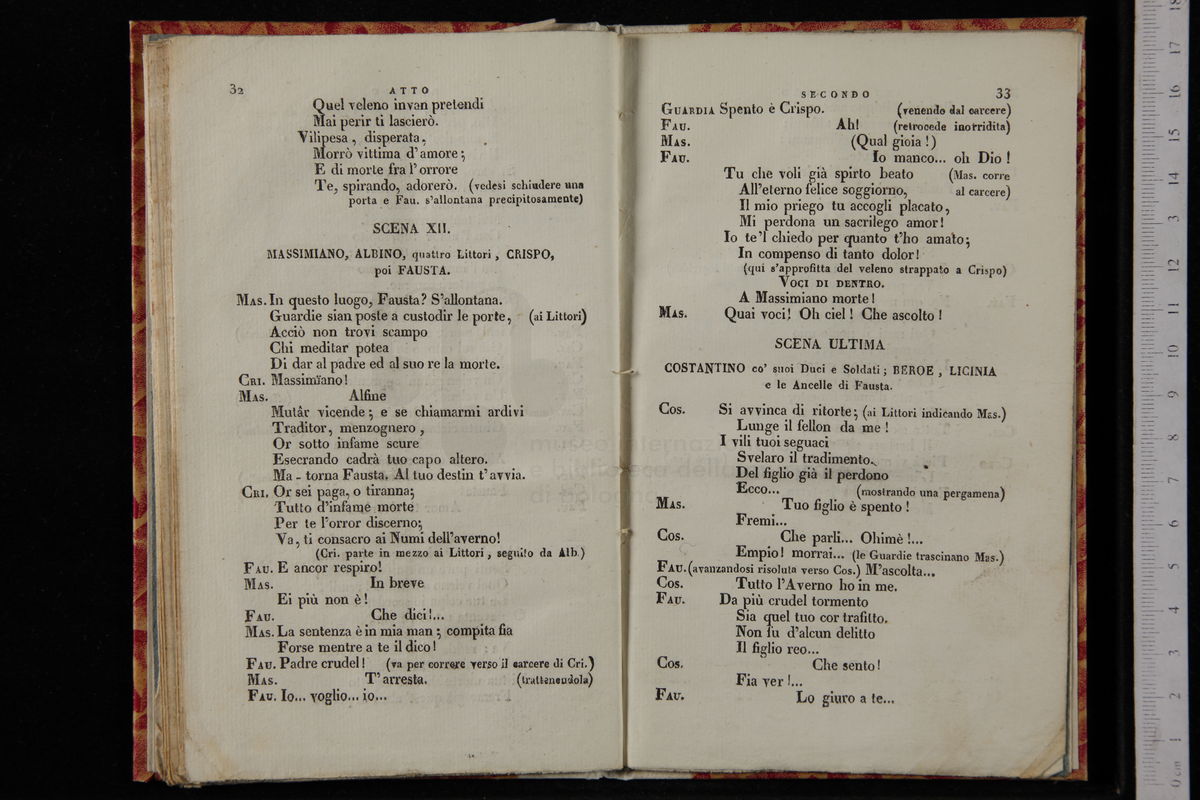 32
ATTO
Quel veleno invan pretendi
Mai perir ti lascierò.
Vilipesa, disperata,
Morrò vittima d'amore;
E di morte fra l'orrore
Te, spirando, adorerò. (vedesi schiudere una
porta e Fau. s'allontana precipitosamente)
SCENA XII.
MASSIMIANO, ALBINO, quattro Littori, CRISPO,
poi FAUSTA.
MAS. In questo luogo, Fausta? S'allontana.
Guardie sian poste a custodir le porte, (ai Littori)
Acciò non trovi scampo
Chi meditar potea
Di dar al padre ed al suo re la morte.
CRI. Massimïano!
MAS. Alfine
Mutâr vicende; e se chiamarmi ardivi
Traditor, menzognero,
Or sotto infame scure
Esecrando cadrà tuo capo altero.
Ma - torna Fausta. Al tuo destin t'avvia.
CRI. Or sei paga, o tiranna;
Tutto d'infame morte
Per te l'orror discerno;
Va, ti consacro ai Numi dell'averno!
(Cri. parte in mezzo ai Littori, seguito da Alb.)
FAU. E ancor respiro!
MAS. In breve
Ei più non è!
FAU. Che dici!...
MAS. La sentenza è in mia man; compita fia
Forse mentre a te il dico!
FAU. Padre crudel! (va per correre verso il carcere di Cri.)
MAS. T'arresta. (trattenendola)
FAU. Io... voglio... io...
SECONDO
33
GUARDIA Spento è Crispo. (venendo dal carcere)
FAU. Ah! (retrocede inorridita)
MAS. (Qual gioia!)
FAU. Io manco... oh Dio!
Tu che voli già spirto beato (Mas. corre
All'eterno felice soggiorno, al carcere)
Il mio priego tu accogli placato,
Mi perdona un sacrilego amor!
Io te'l chiedo per quanto t'ho amato;
In compenso di tanto dolor!
(qui s'approfitta del veleno strappato a Crispo)
VOCI DI DENTRO.
A Massimiano morte!
MAS. Quai voci! Oh ciel! Che ascolto!
SCENA ULTIMA
COSTANTINO co' suoi Duci e Soldati; BEROE, LICINIA
e le Ancelle di Fausta.
COS. Si avvinca di ritorte; (ai Littori indicando Mas.)
Lunge il fellon da me!
I vili tuoi seguaci
Svelaro il tradimento.
Del figlio già il perdono
Ecco... (mostrando una pergamena)
MAS. Tuo figlio è spento!
Fremi...
COS. Che parli... Ohimè!...
Empio! morrai... (le Guardie trascinano Mas.)
FAU. (avanzandosi risoluta verso Cos.) M'ascolta...
COS. Tutto l'Averno ho in me.
FAU. Da più crudel tormento
Sia quel tuo cor trafitto.
Non fu d'alcun delitto
Il figlio reo...
COS. Che sento!
Fia ver!...
FAU. Lo giuro a te...
museo internaz
biblioteca della
di bologna
0 cm 1 2 3 4 5 6 7 8 9 10 11 12 13 14 15 16 17 18